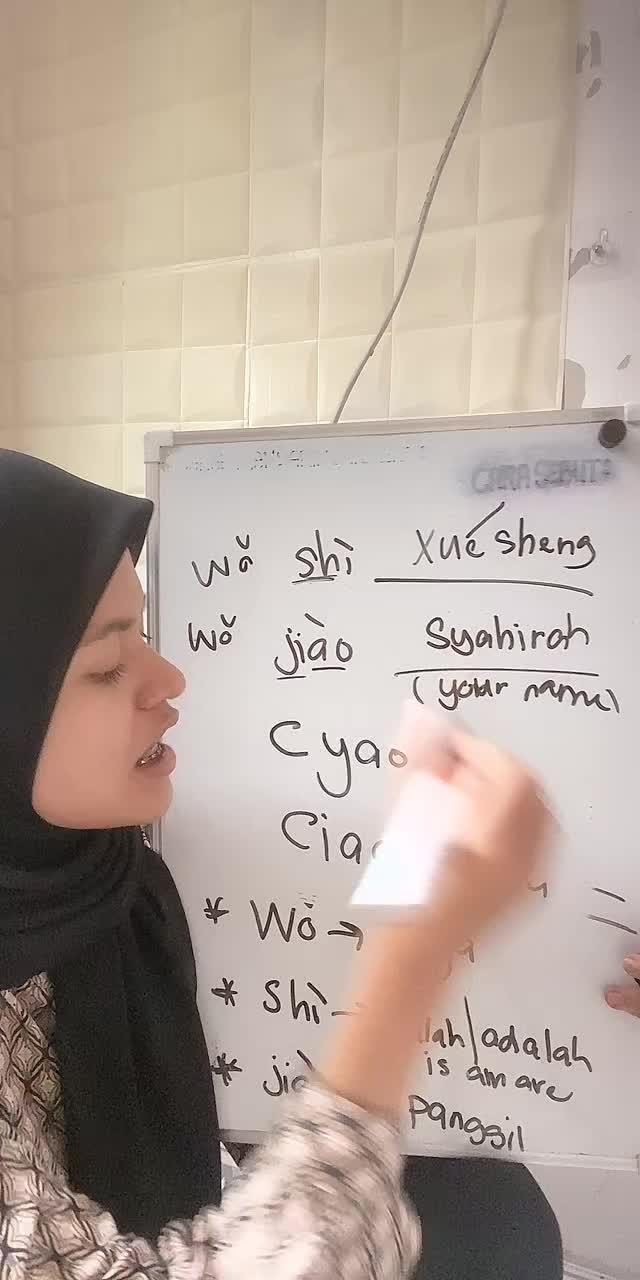 CARA SEBUT
wǒ shì xuésheng
wǒ jiào Syahirah
(your name)
Cyao
Ciao
* Wǒ →
* Shì → lah/adalah
is am are
* jiào Panggil